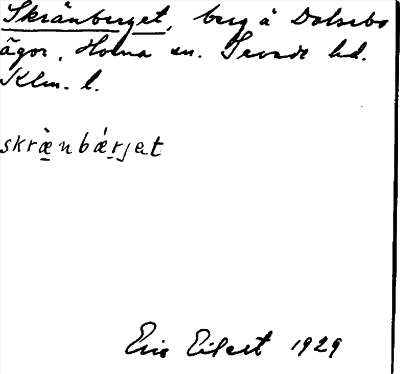 Skränberget, berg å Dalsebo
ägor, Horna sn. Sevede hd.
Klm. l.
skrä̀nbǽrjet
Eric Eilert 1929